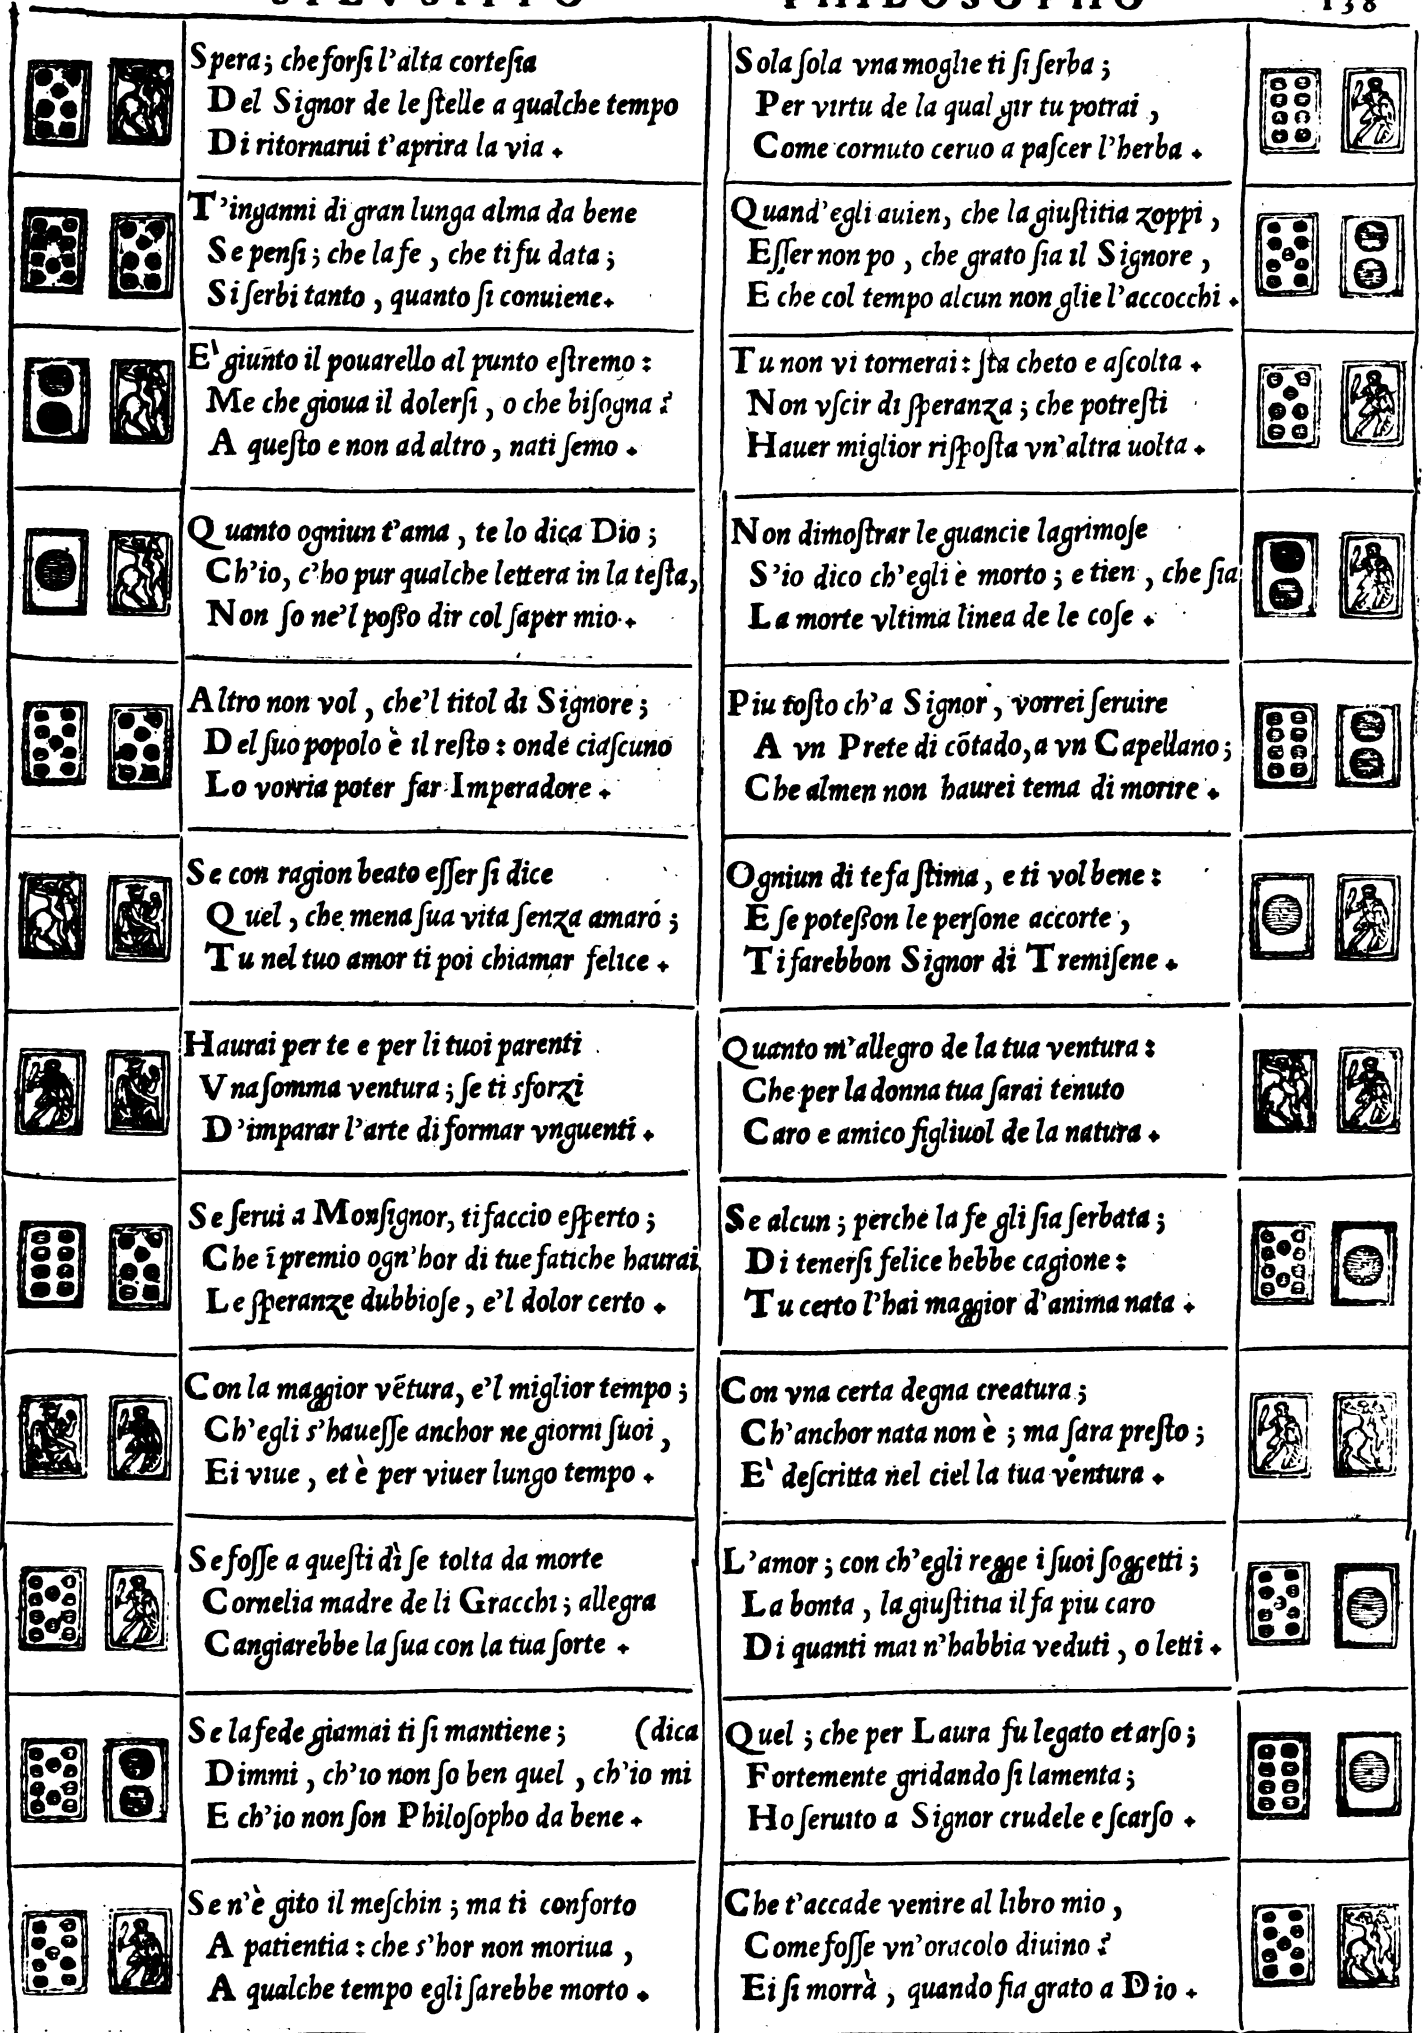 SPEVSIPPO PHILOSOPHO 138
Spera; che forſi l'alta corteſia
Del Signor de le ſtelle a qualche tempo
Di ritornarui t'aprira la via.
T'inganni di gran lunga alma da bene
Se penſi; che la fe, che ti fu data;
Si ſerbi tanto, quanto ſi conuiene.
E' giunto il pouarello al punto eſtremo:
Me che gioua il dolerſi, o che biſogna?
A queſto e non ad altro, nati ſemo.
Quanto ogniun t'ama, te lo dica Dio;
Ch'io, c'ho pur qualche lettera in la teſta,
Non ſo ne'l poſſo dir col ſaper mio.
Altro non vol, che'l titol di Signore;
Del ſuo popolo è il reſto: onde ciaſcuno
Lo vorria poter far Imperadore.
Se con ragion beato eſſer ſi dice
Quel, che mena ſua vita ſenza amaro;
Tu nel tuo amor ti poi chiamar felice.
Haurai per te e per li tuoi parenti
Vna ſomma ventura; ſe ti sforzi
D'imparar l'arte di formar vnguenti.
Se ſerui a Monſignor, ti faccio eſperto;
Che ī premio ogn'hor di tue fatiche haurai
Le ſperanze dubbioſe, e'l dolor certo.
Con la maggior vētura, e'l miglior tempo;
Ch'egli s'haueſſe anchor ne giorni ſuoi,
Ei viue, et è per viuer lungo tempo.
Se foſſe a queſti dì ſe tolta da morte
Cornelia madre de li Gracchi; allegra
Cangiarebbe la ſua con la tua ſorte.
Se la fede giamai ti ſi mantiene; (dica
Dimmi, ch'io non ſo ben quel, ch'io mi
E ch'io non ſon Philoſopho da bene.
Se n'è gito il meſchin; ma ti conforto
A patientia: che s'hor non moriua,
A qualche tempo egli ſarebbe morto.
Sola ſola vna moglie ti ſi ſerba;
Per virtu de la qual gir tu potrai,
Come cornuto ceruo a paſcer l'herba.
Quand'egli auien, che la giuſtitia zoppi,
Eſſer non po, che grato ſia il Signore,
E che col tempo alcun non glie l'accocchi.
Tu non vi tornerai: ſta cheto e aſcolta.
Non vſcir di ſperanza; che potreſti
Hauer miglior riſpoſta vn'altra uolta.
Non dimoſtrar le guancie lagrimoſe
S'io dico ch'egli è morto; e tien, che ſia
La morte vltima linea de le coſe.
Piu toſto ch'a Signor, vorrei ſeruire
A vn Prete di cōtado, a vn Capellano;
Che almen non haurei tema di morire.
Ogniun di te fa ſtima, e ti vol bene:
E ſe poteſſon le perſone accorte,
Ti farebbon Signor di Tremiſene.
Quanto m'allegro de la tua ventura:
Che per la donna tua ſarai tenuto
Caro e amico figliuol de la natura.
Se alcun; perche la fe gli ſia ſerbata;
Di tenerſi felice hebbe cagione:
Tu certo l'hai maggior d'anima nata.
Con vna certa degna creatura;
Ch'anchor nata non è; ma ſara preſto;
E' deſcritta nel ciel la tua ventura.
L'amor; con ch'egli regge i ſuoi ſoggetti;
La bonta, la giuſtitia il fa piu caro
Di quanti mai n'habbia veduti, o letti.
Quel; che per Laura fu legato et arſo;
Fortemente gridando ſi lamenta;
Ho ſeruito a Signor crudele e ſcarſo.
Che t'accade venire al libro mio,
Come foſſe vn'oracolo diuino?
Ei ſi morrà, quando fia grato a Dio.